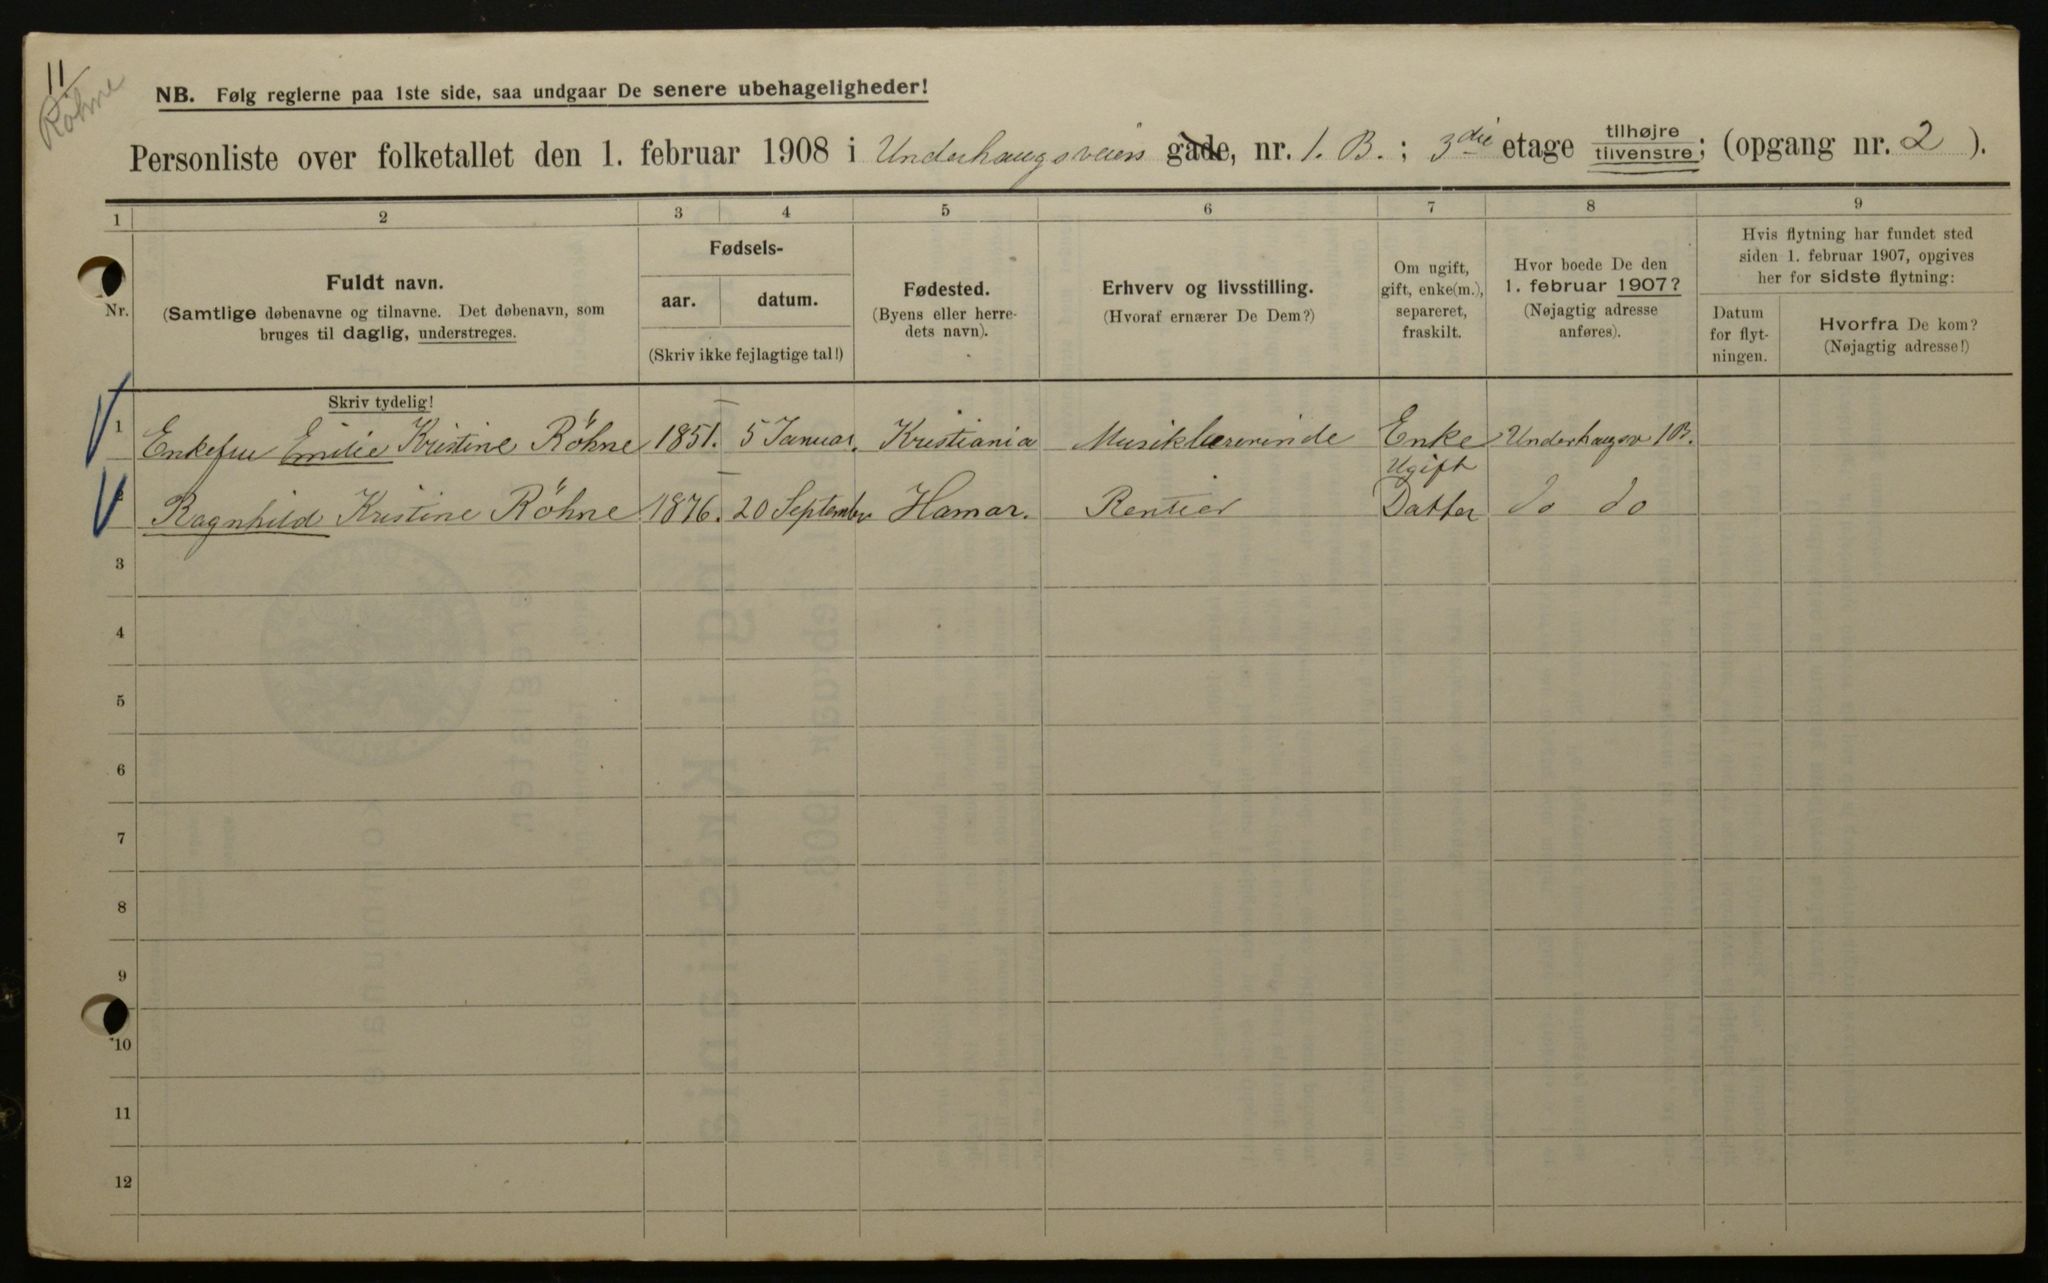 11
Röhne
NB. Følg reglerne paa 1ste side, saa undgaar De senere ubehageligheder!
Personliste over folketallet den 1. februar 1908 i Underhaugsveien gade, nr. 1. B. ; 3die etage tilhøjre tilvenstre; (opgang nr. 2 ).
1 2 3 4 5 6 7 8 9
Nr.
Fuldt navn.
(Samtlige døbenavne og tilnavne. Det døbenavn, som
bruges til daglig, understreges.
Skriv tydelig!
Fødsels-
aar. datum.
(Skriv ikke fejlagtige tal!)
Fødested.
(Byens eller herre-
dets navn).
Erhverv og livsstilling.
(Hvoraf ernærer De Dem?)
Om ugift,
gift, enke(m.),
separeret,
fraskilt.
Hvor boede De den
1. februar 1907?
(Nøjagtig adresse
anføres).
Hvis flytning har fundet sted
siden 1. februar 1907, opgives
her for sidste flytning:
Datum
for flyt-
ningen.
Hvorfra De kom?
(Nøjagtig adresse!)
1 Enkefru Emilie Kristine Röhne 1851. 5 Januar. Kristiania Musiklærerinde Enke Underhaugsv 1B.
Ragnhild Kristine Röhne 1876. 20 September Hamar. Rentier Ugift Datter do do
3
4
5
6
7
8
9
10
11
12